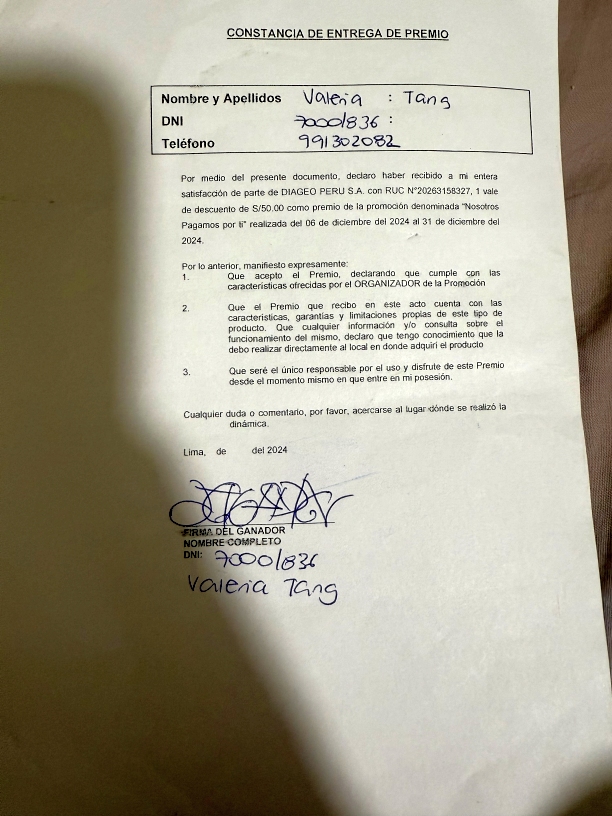 CONSTANCIA DE ENTREGA DE PREMIO
Nombre y Apellidos Valeria : Tang
DNI 70001836 :
Teléfono 991302082
Por medio del presente documento, declaro haber recibido a mi entera
satisfacción de parte de DIAGEO PERU S.A. con RUC N°20263158327, 1 vale
de descuento de S/50.00 como premio de la promoción denominada "Nosotros
Pagamos por ti" realizada del 06 de diciembre del 2024 al 31 de diciembre del
2024.
Por lo anterior, manifiesto expresamente:
1. Que acepto el Premio, declarando que cumple con las
características ofrecidas por el ORGANIZADOR de la Promoción
2. Que el Premio que recibo en este acto cuenta con las
características, garantías y limitaciones propias de este tipo de
producto. Que cualquier información y/o consulta sobre el
funcionamiento del mismo, declaro que tengo conocimiento que la
debo realizar directamente al local en donde adquirí el producto
3. Que seré el único responsable por el uso y disfrute de este Premio
desde el momento mismo en que entre en mi posesión.
Cualquier duda o comentario, por favor, acercarse al lugar dónde se realizó la
dinámica.
Lima, de del 2024
FIRMA DEL GANADOR
NOMBRE COMPLETO
DNI: 70001836
Valeria Tang